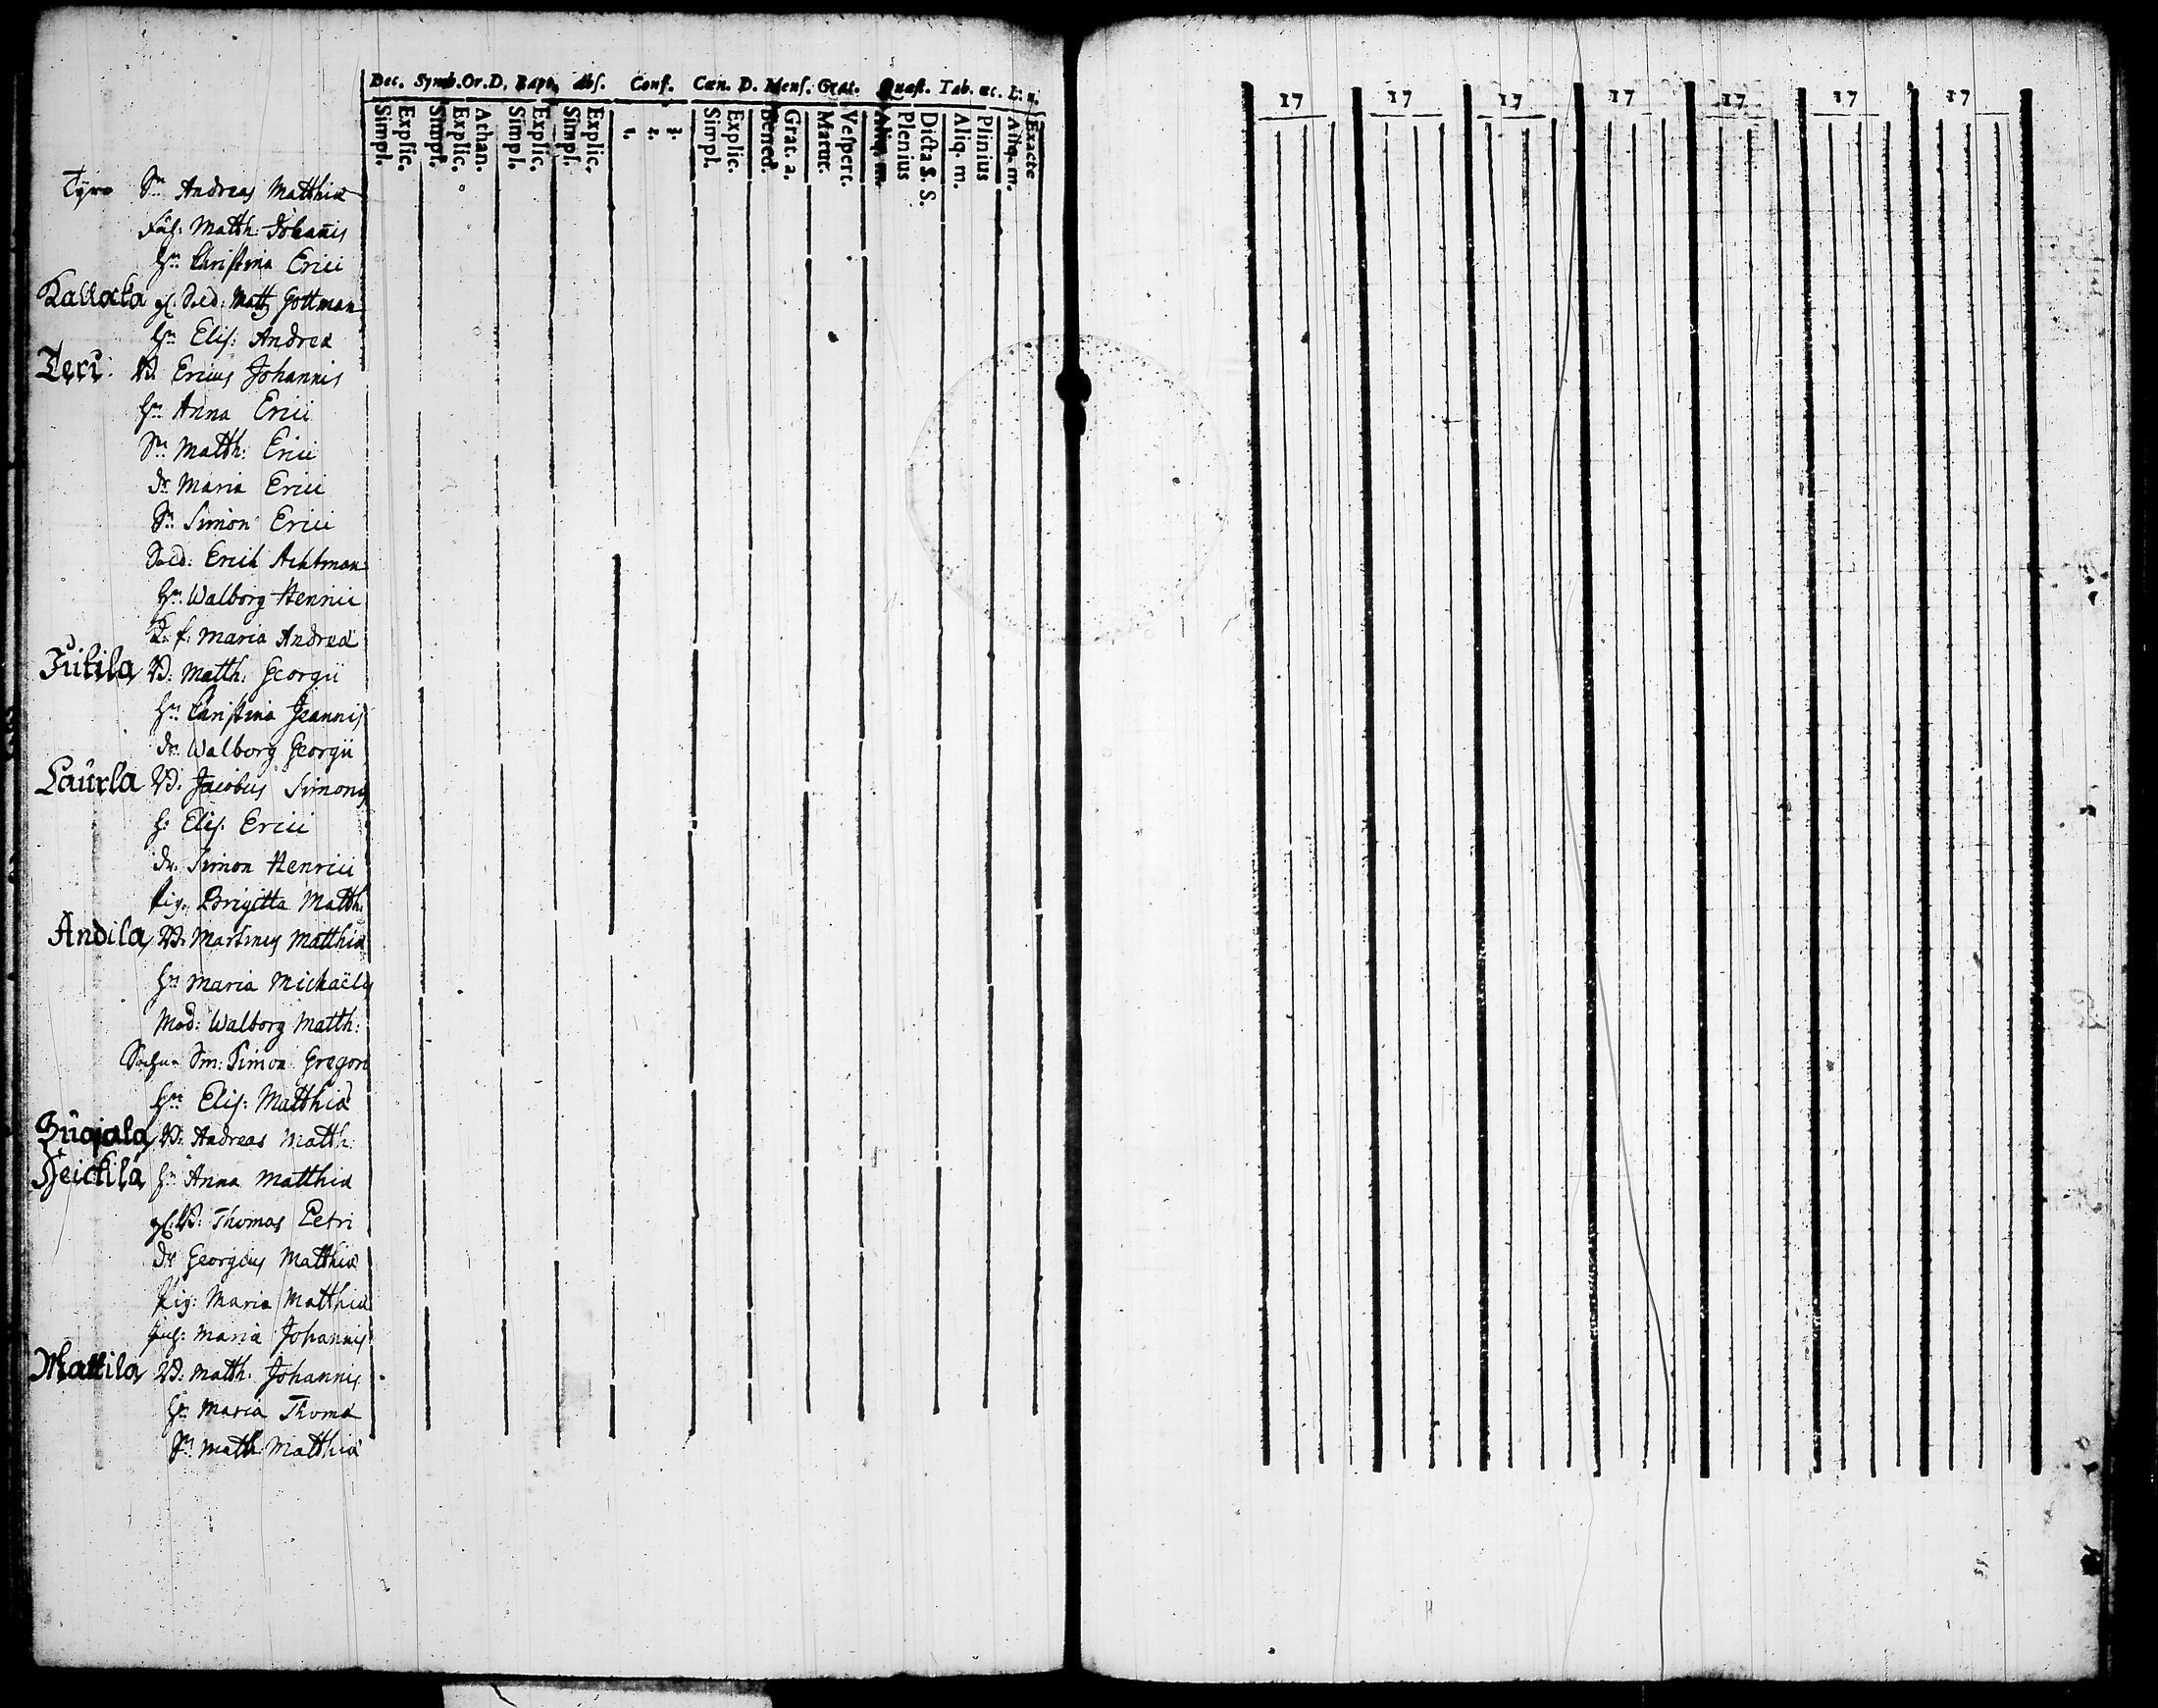 Dec. Symb. Or. D. Bapt. Abs. Conf. Cœn. D. Mens. Grat. Quæst. Tab. œc. L. u.
Simpl. Explic. Simpl. Explic. Athan. Simpl. Explic. Simpl. Explic. 1. 2. 3. Simpl. Explic. Bened. Grat. a. Matut. Vespert. Aliq. m. Plenius Dicta S. S. Aliq. m. Plinius Aliq. m. Exacte
17 17 17 17 17 17 17
Tyro Sn Andreas Matthiæ
Matth: Johañis
Hu: Christina Erici
Kallacka gl. Sold: Matts Gottman
Hu: Elis: Andreæ
Pert: Vd. Ericus Johannis
Hu: Anna Erici
Sn: Matth: Erici
dr: Maria Erici
Sn: Simon Erici
Sold: Erich Achtman
Hu: Walborg Henrici
K. f: Maria Andreæ
Jutila Vd: Matth: Georgii
Hu: Christina Joannis
dr: Walborg Georgii
Laurla Vd. Jacobus Simonis
H: Elis. Erici
dr: Simon Henrici
Pig. Brigitta Matth:
Andila Vd. Martinus Matthiæ
Hu: Maria Michaëlis
Mod: Walborg Matth:
Sm: Simon Gregori
Hu: Elis: Matthiæ
Vd: Andreas Matth:
Heickilä Hu: Anna Matthiæ
gl. Vd: Thomas Petri
dr Georgius Matthiæ
Pig: Maria Matthiæ
Maria Johannis
Mattila Vd: Matth. Johannis
Hu: Maria Thomæ
Sn Matth: Matthiæ